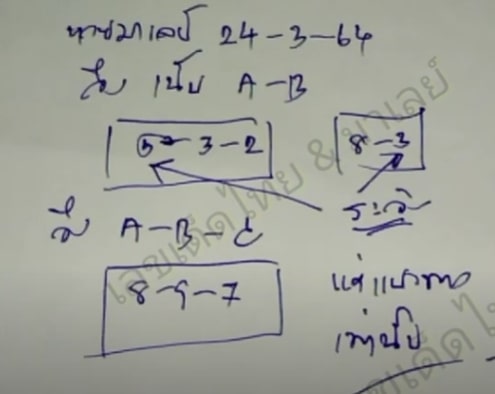 หวยมาเลย์ 24-3-64
วิ่ง เน้น A-B
5-3-2
8-3
ระวัง
วิ่ง A-B-C
8-9-7
แค่แนวทาง
เท่านั้น
เลขเด็ดไทย & มาเลย์